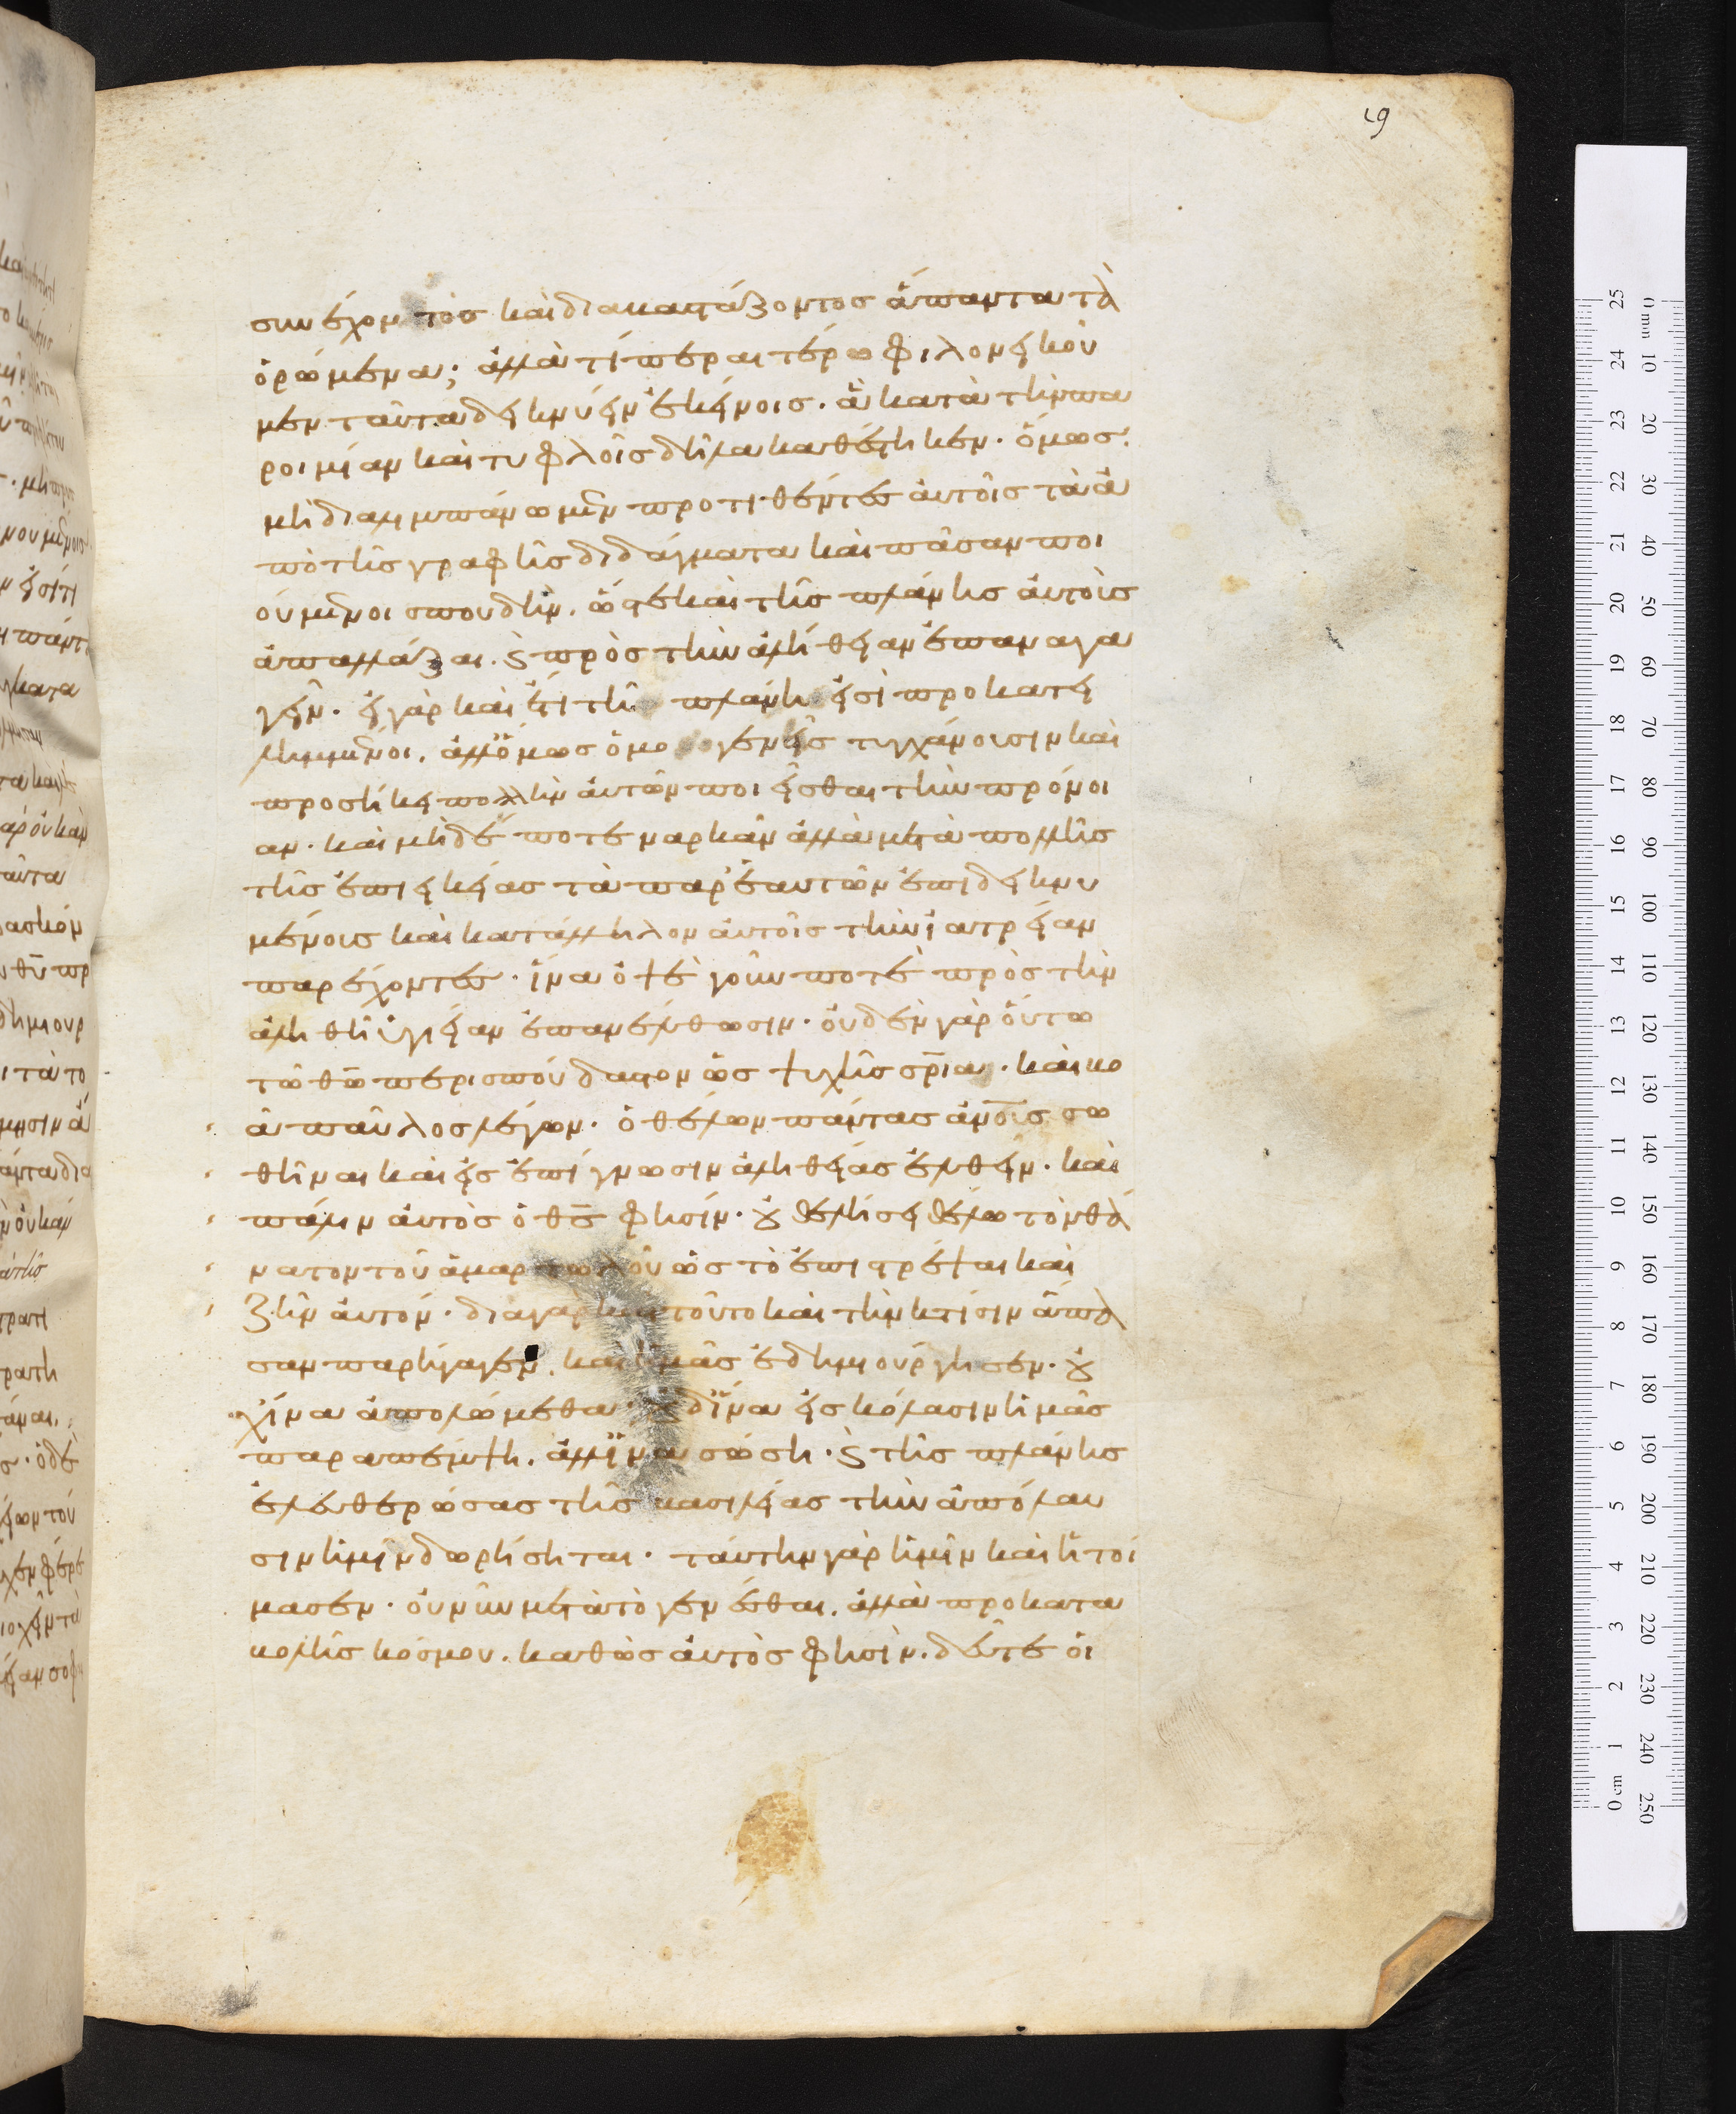 19
συνέχοντος καὶ διαβαστάζοντος ἅπαντα τὰ
ὁρώμενα; ἀλλὰ τί περαιτέρω φιλονεικοῦ
μεν ταῦτα δεικνύειν ἐκείνοις. ἃ κατὰ τὴν πα
ροιμίαν καὶ τυφλοῖς δῆλα καθέστηκεν. ὅμως
μὴ διαλιμπάνωμεν προτιθέντες αὐτοῖς τὰ ἀ
πὸ τῆς γραφῆς διδάγματα καὶ πᾶσαν ποι
ούμενοι σπουδὴν. ὥστε καὶ τῆς πλάνης αὐτοὺς
ἀπαλλάξαι. ϗ πρὸς τὴν ἀλήθειαν ἐπαναγα
γεῖν. εἰ γὰρ καὶ ἔτι τῆ πλάνη εἰσὶ προκατει
λημμένοι. ἀλλ' ὅμως ὁμογενεῖς τυγχάνουσιν καὶ
προσήκει πολλὴν αὐτῶν ποιεῖσθαι τὴν πρόνοι
αν. καὶ μηδέποτε ναρκᾶν ἀλλὰ μετὰ πολλῆς
τῆς ἐπιεικείας τὰ παρ' ἑαυτῶν ἐπιδεικνυ
μένους καὶ κατάλληλον αὐτοῖς τὴν ἰατρείαν
παρέχοντες. ἵνα ὀψὲ γοῦν ποτὲ πρὸς τὴν
ἀληθῆ ὑγίειαν ἐπανέλθωσιν. οὐδὲν γὰρ οὕτω
τῶ θῶ περισπούδαστον ὡς ψυχῆς σρία. καὶ βο
ᾶ παῦλος λέγων. ὁ θέλων πάντας ἀνοις σω
θῆναι καὶ εἰς ἐπίγνωσιν ἀληθείας ἐλθεῖν. καὶ
πάλιν αὐτὸς ὁ θς φησίν. οὐ θελήσει θέλω τὸν θά
νατον τοῦ ἁμαρτωλοῦ ὡς τὸ ἐπιστρέψαι καὶ
ζῆν αὐτόν. διὰ γὰρ τοῦτο καὶ τὴν κτίσιν ἅπα
σαν παρήγαγεν. καὶ ἡμᾶς ἐδημιούργησεν. οὐ
χ ἵνα ἀπολώμεθα. οὐδ' ἵνα εἰς κόλασιν ἡμᾶς
παραπέμψη. ἀλλ' ἵνα σώση. ϗ τῆς πλάνης
ἐλευθερώσας τῆς βασιλείας τὴν ἀπόλαυ
σιν ἡμῖν δωρήσηται. ταύτην γὰρ ἡμῖν καὶ ἡτοί
μασεν. οὐ νῦν μετὰ τὸ γενέσθαι. ἀλλὰ προ κατα
βολῆς κόσμου. καθὼς αὐτὸς φησὶν. δεῦτε οἱ